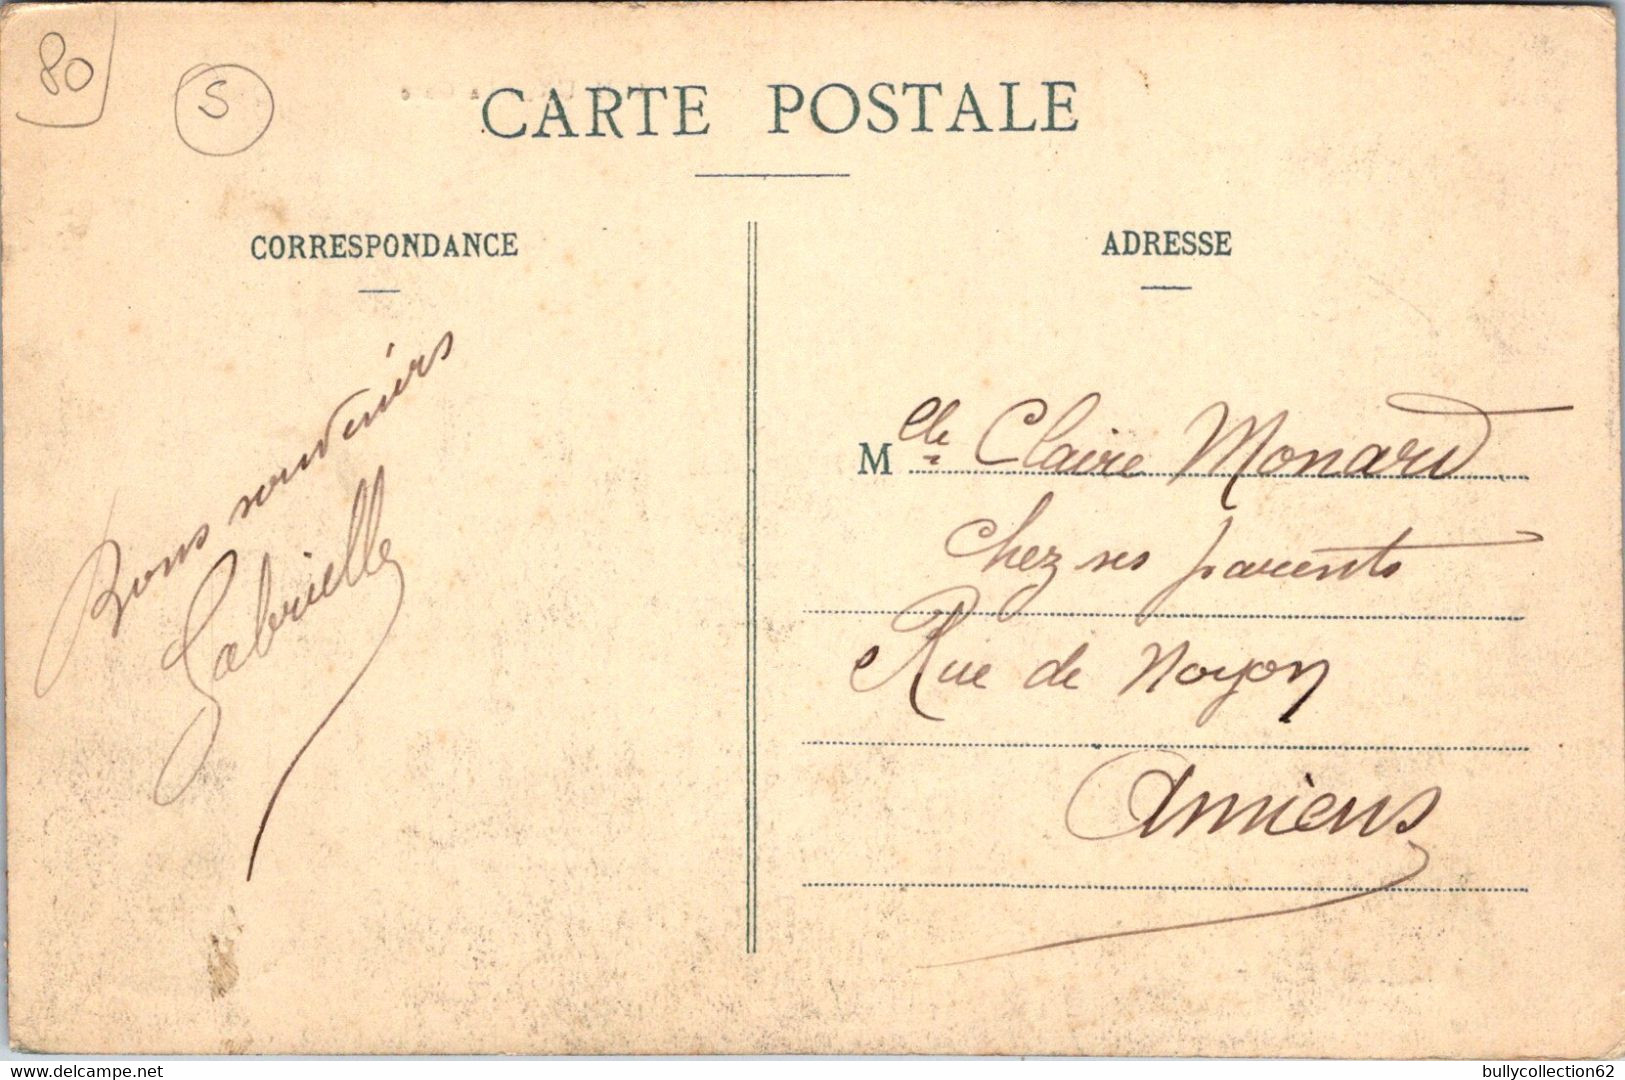 80
S
CARTE POSTALE
CORRESPONDANCE
Bons souvenirs
Gabrielle
ADRESSE
Melle Claire Monard
Chez ses parents
Rue de Noyon
Amiens
delcampe.net
bullycollection62